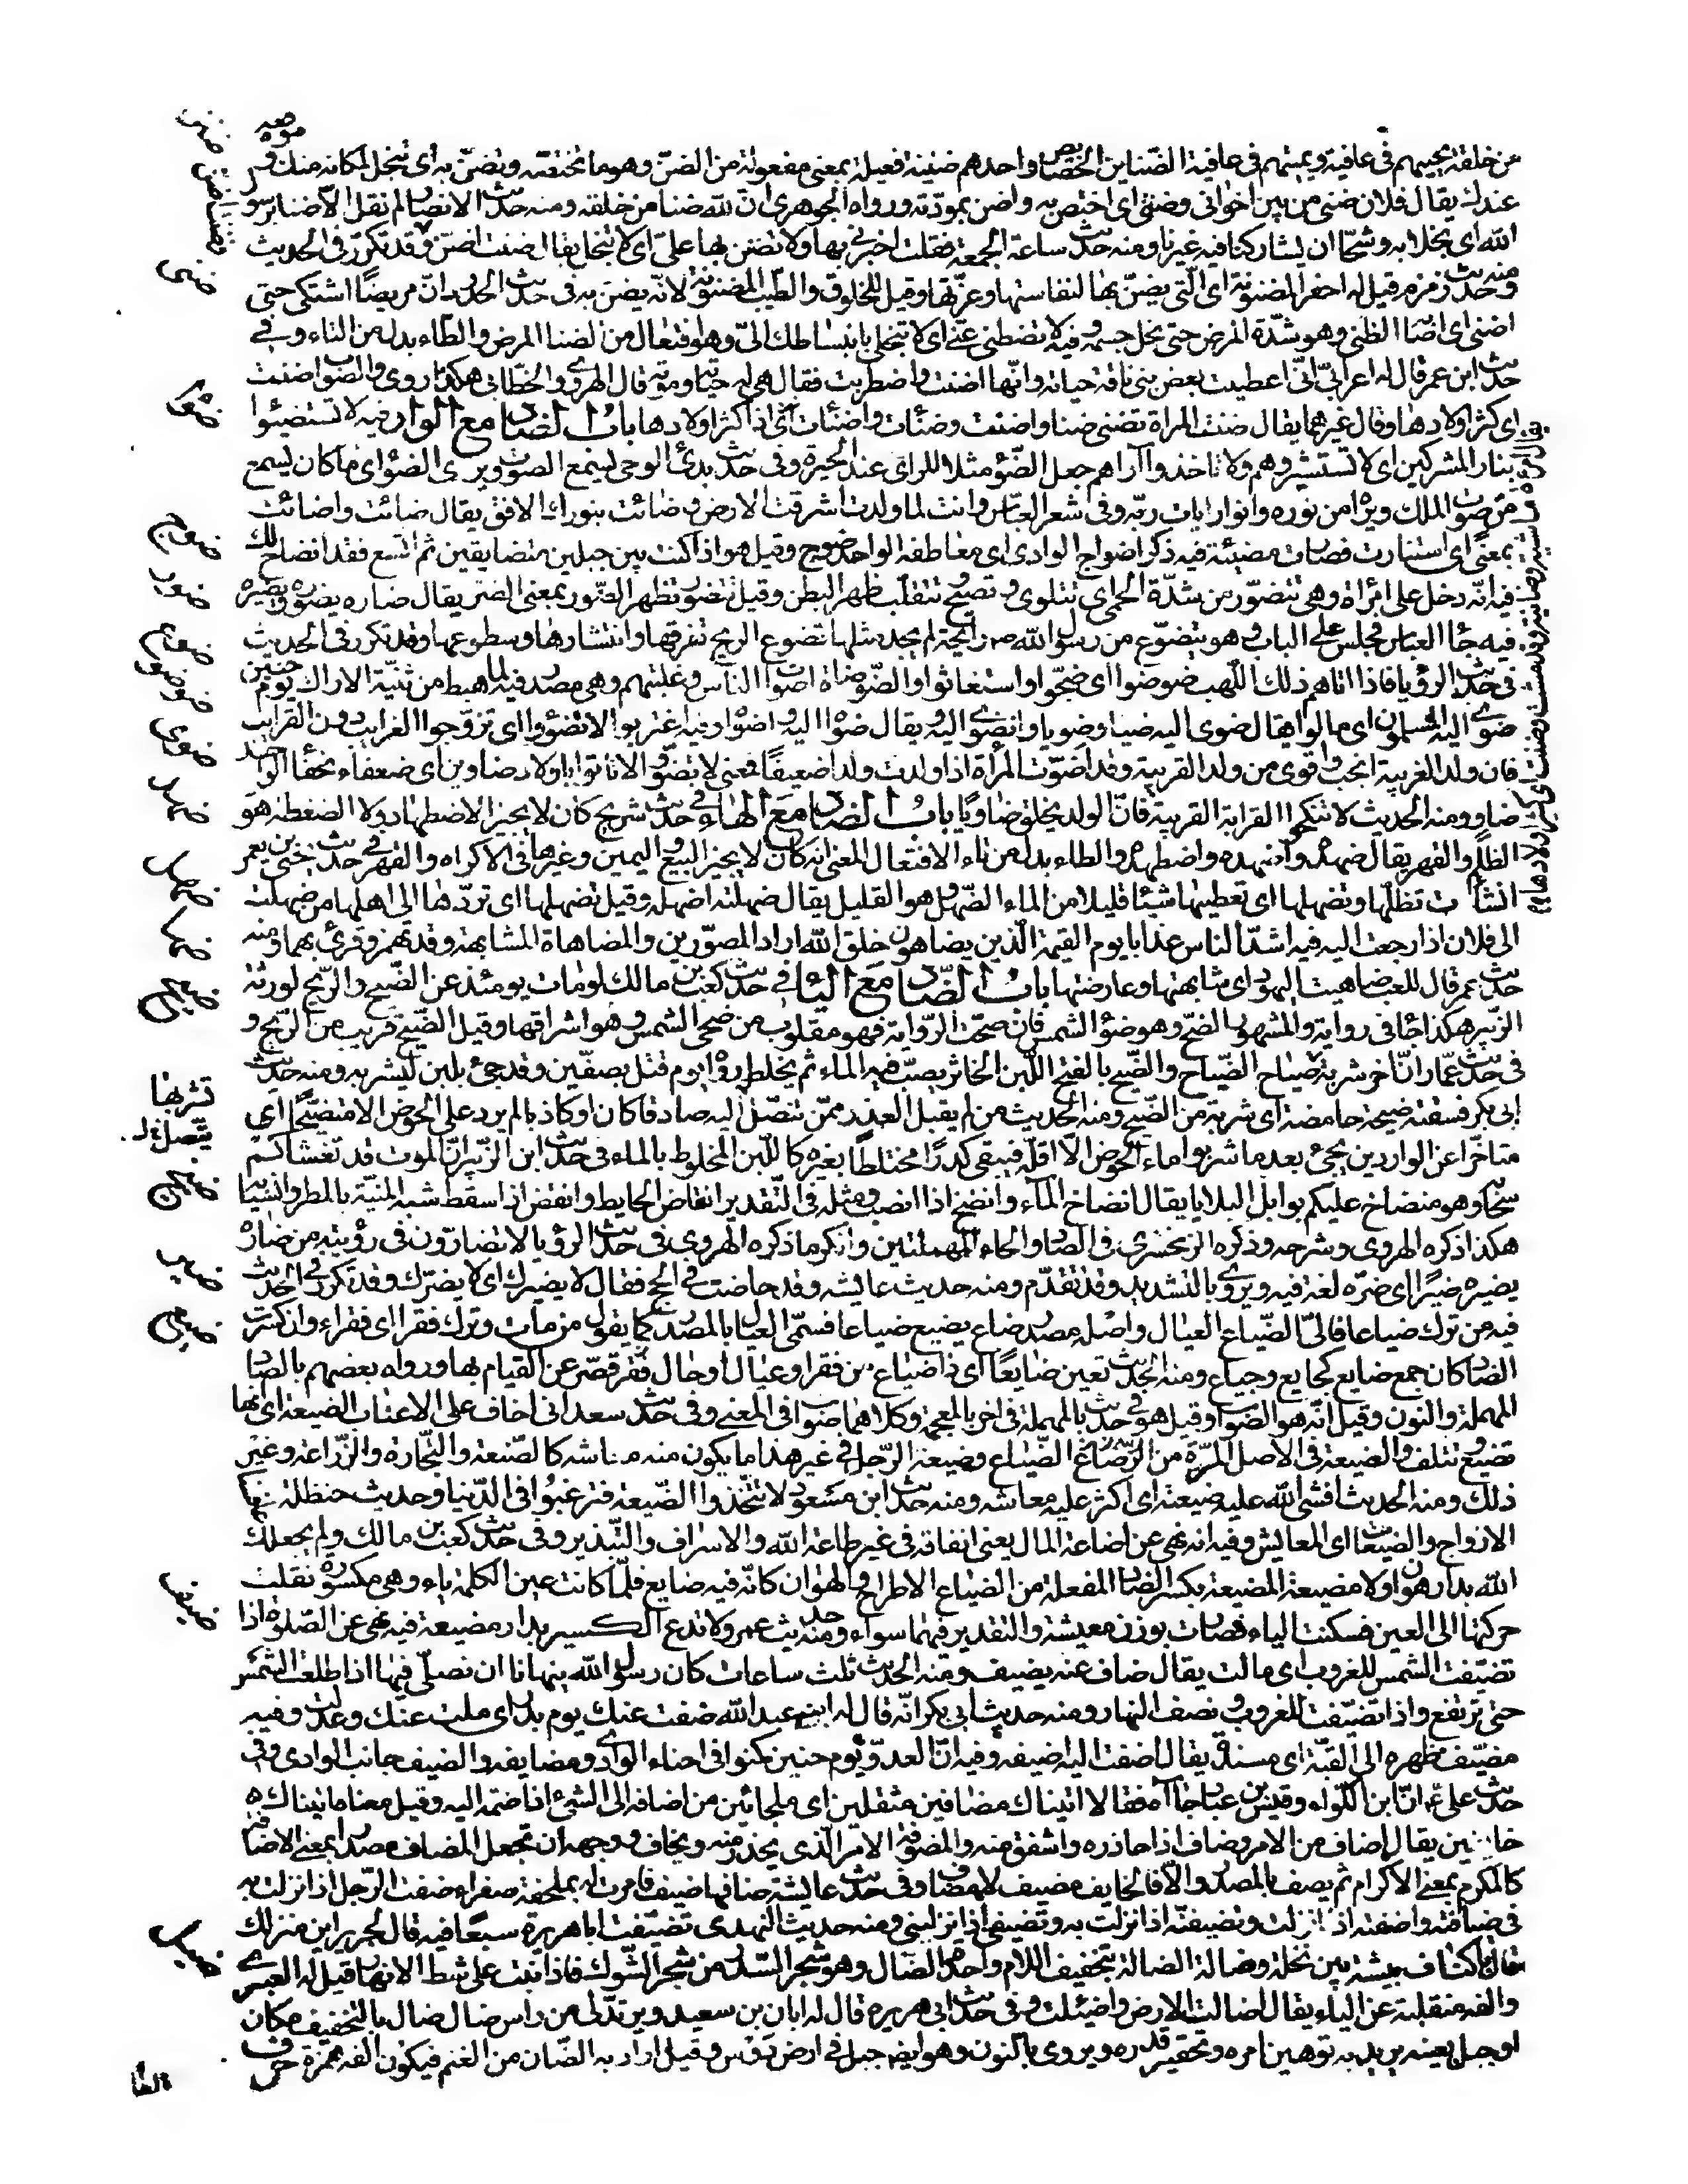 من خلقه يحييهم فى عافية ويميتهم فى عافية الضناين الخصايص واحدهم ضنينة فعيلة بمعنى مفعولة من الضن وهو ما تختصه وتضن به اى تبخل لمكانه منك وموقعه
عندك يقال فلان ضنى من بين اخوانى وضنتى اى اختص به واضن بمودته ورواه الجوهرى ان لله ضنا من خلقه ومنه حديث الانصار لم نقل الا ضنا برسول
الله اى بخلا به وشحا ان يشاركنا فيه غيرنا ومنه حديث ساعة الجمعة فقلت اخبرنى بها ولا تضنن بها على اى لا تبخل يقال ضننت اضن وقد تكرر فى الحديث
ومنه حديث زمزم قيل له احفر المضنونة اى التى يضن بها لنفاستها وعزتها وقيل للخلوق والطيب المضنونة لانه يضن به فى حديث الحدود ان مريضا اشتكى حتى
اضنى اى اصابه الضنى وهو شدة المرض حتى نحل جسمه وفيه لا تضطنى عنى اى لا تبخلى بانبساطك الى وهو افتعال من الضنا المرض والطاء بدل من التاء وفى
حديث ابن عمر قال له اعرابى انى اعطيت بعض بنى ناقة حياته وانها اضنت واضطربت فقال هى له حياته وموته قال الهروى والخطابى هكذا روى والصواب ضنت
اى كثر اولادها وقال غيرهما يقال ضنت المراة تضنى ضنا واضنت وضنأت واضنأت اى اذا كثر اولادها باب الضاد مع الواو فيه لا تستضيئوا
بنار المشركين اى لا تستشيروهم ولا تاخذوا آراهم جعل الضوء مثلا للراى عند الحيرة وفى حديث بدئ الوحى يسمع الصوت ويرى الضوء اى ما كان يسمع
من صوت الملك ويراه من نوره وانوار ايات ربه وفى شعر العباس وانت لما ولدت اشرقت الارض وضائت بنورك الافق يقال ضائت واضائت
بمعنى اى استنارت وصارت مضيئة فيه ذكر اضواج الوادى اى معاطفه الواحد ضوج وقيل هو اذا كنت بين جبلين متضايقين ثم اتسع فقد انضاج لك
فيه انه دخل على امرأة وهى تتضور من شدة الحمى اى تتلوى وتضج وتتقلب ظهرا لبطن وقيل تتضور تظهر الضور بمعنى الضر يقال ضاره يضوره ويضيره
فيه جاء العباس فجلس على الباب وهو يتضوع من رسول الله ص رايحة لم يجد مثلها تضوع الريح تفرقها وانتشارها وسطوعها وقد تكرر فى الحديث
فى حديث الرؤيا فاذا اتاهم ذلك اللهب ضوضوا اى ضجوا واستغاثوا والضوضاة اصوات الناس وغلبتهم وهى مصدر فيه لما هبط من ثنية الاراك يوم حنين
ضوى اليه المسلمون اى مالوا يقال ضوى اليه ضيا وضويا وانضوى اليه ويقال ضواه اليه واضواه وفيه اغتربوا لا تضووا اى تزوجوا الغرايب دون القرايب
فان ولد الغريبة انجب واقوى من ولد القريبة وقد اضوت المرأة اذا ولدت ولدا ضعيفا فمعنى لا تضووا لا تاتوا باولاد ضاوين اى ضعفاء نحفا الواحد
ضاو ومنه الحديث لا تنكحوا القرابة القريبة فان الولد يخلق ضاويا باب الضاد مع الهاء فى حديث شريح كان لا يجيز الاضطهاد ولا الضغطة هو
الظلم والقهر يقال ضهده واضهده واضطهده والطاء بدل من تاء الافتعال المعنى انه كان لا يجيز البيع واليمين وغيرها فى الاكراه والقهر فى حديث يحيى بن يعمر
انشأت تطلها وتضهلها اى تعطيها شيئا قليلا من الماء الضهل وهو القليل يقال ضهلته اضهله وقيل تضهلها اى تردها الى اهلها من ضهلت
الى فلان اذا رجعت اليه فيه اشد الناس عذابا يوم القيمة الذين يضاهون خلق الله اراد المصورين والمضاهاة المشابهة وقد تهمز وقرئ بهما ومنه
حديث عمر قال لكعب ضاهيت اليهود اى شابهتها وعارضتها باب الضاد مع الياء فى حديث كعب بن مالك لو مات يومئذ عن الضيح والريح لورثه
الزبير هكذا جاء فى رواية والمشهور الضح وهو ضوء الشمس فان صحت الرواية فهو مقلوب من ضحى الشمس وهو اشراقها وقيل الضيح قريب من الريح و
فى حديث عمار ان اخر شربة ضياح الضياح والضيح بالفتح اللبن الخاثر يصب فيه الماء ثم يخلط رواه يوم قتل بصفين وقد جئ بلبن ليشربه ومنه حديث
ابى بكر فسقته ضيحة حامضة اى شربة من الضيح ومنه الحديث من لم يقبل العذر ممن تنصل اليه صادقا كان او كاذبا لم يرد على الحوض الا متضيحا اى
متاخرا عن الواردين يجئ بعد ما شربوا ماء الحوض الا اقله فيبقى كدرا مختلطا بغيره كاللبن المخلوط بالماء فى حديث ابن الزبير ان الموت قد تغشاكم
سحابه وهو منضاخ عليكم بوابل البلايا يقال انضاخ الماء وانضخ اذا انصب ومثله فى التقدير انقاض الحايط وانقض اذا سقط شبه المنية بالمطر وانسيابه
هكذا ذكره الهروى وشرحه وذكره الزمخشرى فى الصاد والحاء المهملتين وانكر ما ذكره الهروى فى حديث الرؤيا لا تضارون فى رؤيته من ضاره
يضيره ضيرا اى ضره لغة فيه ويروى بالتشديد وقد تقدم ومنه حديث عايشه وقد حاضت فى الحج فقال لا يضيرك اى لا يضرك وقد تكرر فى الحديث
فيه من ترك ضياعا فالى الضياع العيال واصله مصدر ضاع يضيع ضياعا فسمى العيال بالمصدر كما يقول من مات وترك فقرا اى فقراء وان كسرت
الضاد كان جمع ضايع كجايع وجياع ومنه الحديث تعين ضايعا اى ذا ضياع من فقر او عيال او حال قصر عن القيام بها ورواه بعضهم بالصاد
المهملة والنون وقيل انه هو الصواب وقيل هو فى حديث بالمهملة فى اخر بالمعجمة وكلاهما صواب فى المعنى وفى حديث سعد انى اخاف على الاعناب الضيعة اى انها
تضيع وتتلف والضيعة فى الاصل المرة من الضياع وضيعة الرجل فى غير هذا ما يكون منه معاشه كالصنعة والتجارة والزراعة وغير
ذلك ومنه الحديث افشى الله عليه ضيعته اى اكثر عليه معاشه ومنه حديث ابن مسعود لا تتخذوا الضيعة فترغبوا فى الدنيا وحديث حنظلة
الازواج والضيعات اى المعايش وفيه انه نهى عن اضاعة المال يعنى انفاقه فى غير طاعة الله والاسراف والتبذير وفى حديث كعب بن مالك ولم يجعلك
الله بدار هوان ولا مضيعة المضيعة بكسر الضاد المفعلة من الضياع الاطراح والهوان كانه فيه ضايع فلما كانت عين الكلمة ياء وهى مكسورة نقلت
حركتها الى العين فسكنت الياء فصارت بوزن معيشة والتقدير فيهما سواء ومنه حديث عمر ولا تدع الكسير بدار مضيعة فيه نهى عن الصلوة اذا
تضيفت الشمس للغروب اى مالت يقال ضاف عنه يضيف ومنه الحديث ثلث ساعات كان رسول الله ينهانا ان نصلى فيها اذا طلعت الشمس
حتى ترتفع واذا تضيفت للغروب ونصف النهار ومنه حديث ابى بكر انه قال له ابنه عبد الله ضفت عنك يوم بدر اى ملت عنك وعدلت وفيه
مضيف ظهره الى القبة اى مسنده يقال اضفت اليه اضيفه وفيه ان العدو يوم حنين كمنوا فى احناء الوادى ومضايفه والضيف جانب الوادى وفى
حديث على ع ان ابن الكواء وقيس بن عباد جاآه فقالا اتيناك مضافين مثقلين اى ملجائين من اضافه الى الشئ اذا ضمه اليه وقيل معناه اتيناك
خائفين يقال اضاف من الامر وضاف اذا حاذره واشفق منه والمضوفة الامر الذى يحذر منه ويخاف ووجهه ان تجعل المضاف مصدرا بمعنى الاضافة
كالمكرم بمعنى الاكرام ثم يصف بالمصدر والا فالخايف مضيف لا مضاف وفى حديث عايشة ضافها ضيف فامرت له بملحفة صفراء ضفت الرجل اذا نزلت به
فى ضيافته واضفته اذا انزلته وتضيفته اذا نزلت به وتضيفنى اذا انزلنى ومنه حديث النهدى تضيفت ابا هريرة سبعا فيه قال لجرير اين منزلك
قال باكناف بيشة بين نخلة وضالة الضالة بتخفيف اللام واحدة الضال وهو شجر السدر من شجر الشوك فاذا نبت على شط الانهار قيل له العبرى
والفه منقلبة عن الياء يقال اضالت الارض واضيلت وفى حديث ابى هريره قال له ابان بن سعيد وبر تدلى من راس ضال ضال بالتخفيف مكان
او جبل بعينه يريد به توهين امره وتحقير قدره ويروى بالنون وهو ايضا جبل فى ارض دوس وقيل اراد به الضان من الغنم فيكون الفه همزة حرف
ضنن
ضنى
ضوء
ضوج
ضور
ضوع
ضوضو
ضوى
ضهد
ضهل
ضها
ضيح
تشربها
ضيخ
ضير
ضيع
ضيف
ضيل